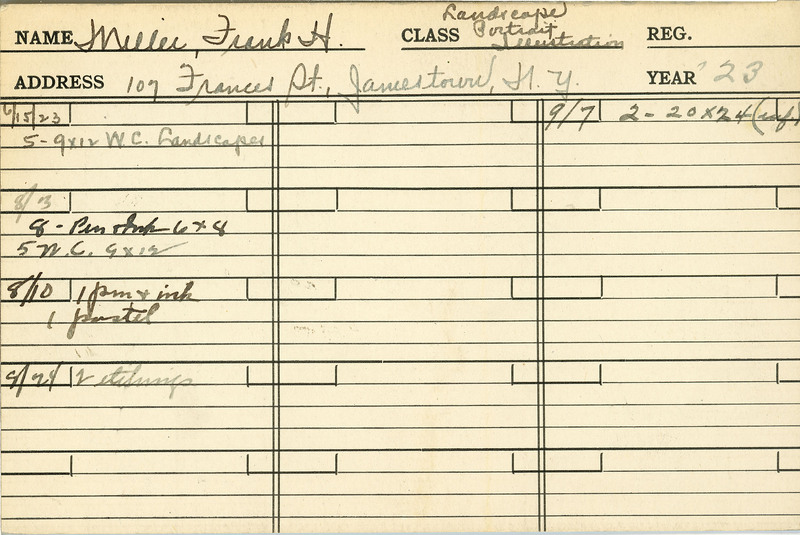 NAME Miller, Frank H. CLASS Landscape Portrait Illustration REG.
ADDRESS 107 Frances St., Jamestown, N.Y. YEAR '23
6/15/23
5 - 9x12 W.C. Landscapes
9/7 2 - 20x24
8/3
8 - Pen & Ink 6x8
5 W.C. 9x12
8/10 1 pen & ink
1 pastel
8/24 2 etchings